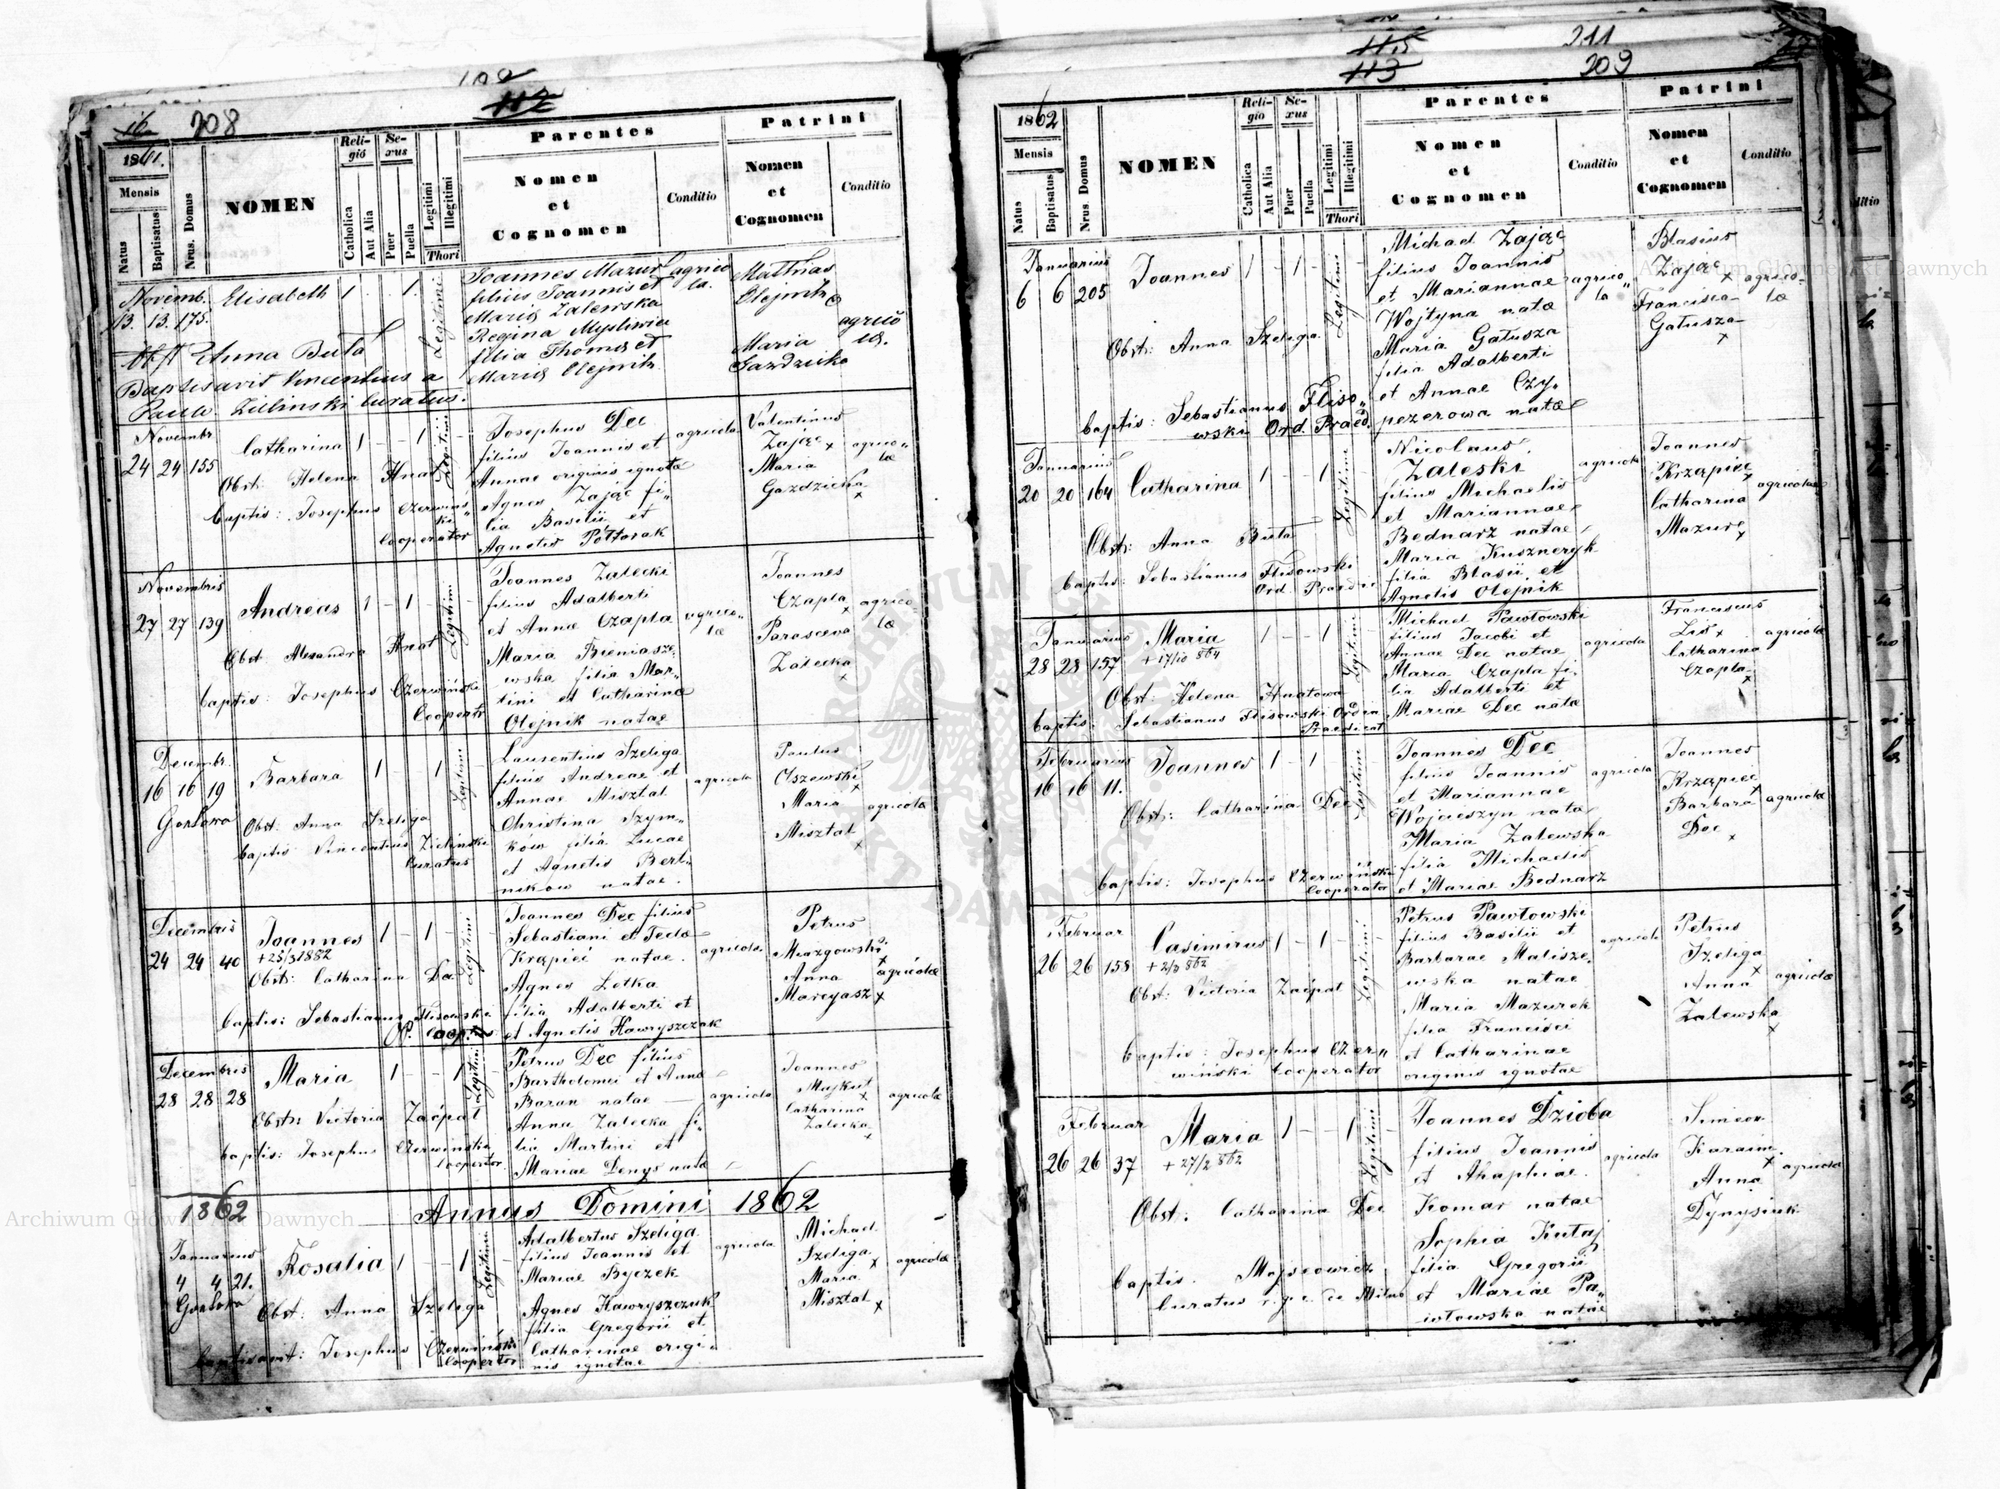 208
1861.
Mensis
Natus
Baptisatus
Nrus. Domus
NOMEN
Religio
Catholica
Aut Alia
Sexus
Puer
Puella
Legitimi
Illegitimi
Thori
Parentes
Nomen
et
Cognomen
Conditio
Patrini
Nomen
et
Cognomen
Conditio
Novemb.
13. 13. 175.
Elisabeth 1 1.
Legitimi
Joannes Mazur
filius Joannis et
Maria Zalewska
Regina Mysliwia
filia Thomę et
Marię Olejnik
agrico
la.
Mathias
Olejnik
Maria
Gazdzicka
Obst Anna Buta
Baptisavit Vincentius a
Paulo Zielinski Curatus.
Novembr
24 24 155
Catharina 1 – – 1
Legitimi
Obst: Helena Hnat
Baptis: Josephus Czerwiński
Cooperator
Josephus Dec
filius Joannis et
Annae originis ignotae
Agnes Zając fi„
lia Basilii et
Agnetis Półtorak
agricola
Valentinus
Zając x
Maria
Gazdzicka
x
agrico„
lae
Novembris
27 27 139
Andreas 1 – 1 –
Legitimi
Obst. Alexandra Hnat
baptis: Josephus Czerwiński
Cooperator
Joannes Zalecki
filius Adalberti
et Annae Czapla
Maria Bieniasze„
wska filia Mar„
tini et Catharinae
Olejnik natae
agrico„
lae
Joannes
Czapla
x
Parasceva
Zalecka
x
agrico„
lae
Decembr.
16 16 19
Barbara 1 – – 1
Legitimi
Obst: Anna Szeliga
baptis Vincentius Zieliński
Curatus
Laurentius Szeliga
filius Andreae et
Annae Misztal
Christina Szym„
kow filia Lucae
et Agnetis Bert„
nikow natae.
agricola
Paulus
Olszewski
x
Maria
Misztal
x
agricolae
Decembris
24 24 40
Joannes 1 – 1 –
+25/3 1882
Legitimi
Obst: Catharina Dec
baptis: Sebastianus Flisowski
Joannes Dec filius
Sebastiani et Teclae
Krąpieć natae.
Agnes Lotka
filia Adalberti et
et Agnetis Hawryszczak
agricola
Petrus
Mazgowski
x
Anna
Marcyasz x
agricolae
Decembris
28 28 28
Maria 1 – – 1
Legitimi
Obst: Victoria Zaópat
baptis: Josephus Czerwiński
Cooperator
Petrus Dec filius
Bartholomei et Annae
Baran natae –
Anna Zalecka fi„
lia Martini et
Mariae Denys natae
agricola
Joannes
Majkut
x
Catharina
Zalecka
x
agricolae
1862 Annus Domini 1862
Januarius
4 4 21.
Rosalia 1 – – 1
Legitimi
Obst: Anna Szeliga
baptisavit: Josephus Czerwiński
Cooperator
Adalbertus Szeliga
filius Joannis et
Mariae Byczek
Agnes Hawryszczuk
filia Gregorii et
Catharinae origi„
nis ignotae
agricola
Michael
Szeliga
x
Maria
Misztal x
agricolae
211
209
1862
Mensis
Natus
Baptisatus
Nrus. Domus
NOMEN
Religio
Catholica
Aut Alia
Sexus
Puer
Puella
Legitimi
Illegitimi
Thori
Parentes
Nomen
et
Cognomen
Conditio
Patrini
Nomen
et
Cognomen
Conditio
Januarius
6 6 205
Joannes 1 – 1 –
Legitimi
Obst: Anna Szeliga
baptis: Sebastianus Fliso„
wski Ord. Praed.
Michael Zając
filius Joannis
et Mariannae
Wojtyna natae
Maria Gałusza
filia Adalberti
et Annae Czy„
pezerowa natae
agrico„
la
Blasius
Zając x
Francisca
Gałusza
x
agrico„
lae
Januarius
20 20 164
Catharina 1 – – 1
Legitimi
Obst: Anna Buta
baptis: Sebastianus Flisowski
Ord. Praedic
Nicolaus
Zaleski
filius Michaelis
et Mariannae
Bednarz natae
Maria Kuszneryk
filia Blasii et
Agnetis Olejnik
agricola
Joannes
Krząpieć
x
Catharina
Mazur
x
agricolae
Januarius
28 28 157
Maria 1 – – 1
+17/10 864
Legitimi
Obst: Helena Hnatowa
baptis: Sebastianus Flisowski Ordin
Praedicat
Michael Pawłowski
filius Jacobi et
Annae Dec natae
Maria Czapla fi„
lia Adalberti et
Mariae Dec natae
agricola
Franciscus
Lis x
Catharina
Czapla
x
agricolae
Februarius
16 16 11.
Joannes 1 – 1 –
Legitimi
Obst: Catharina Dec
baptis: Josephus Czerwiński
Cooperator
Joannes Dec
filius Joannis
et Mariannae
Wojcieszyn natae
Maria Zalewska
filia Michaelis
et Mariae Bednarz
agricola
Joannes
Krząpieć
x
Barbara
Dec
x
agricolae
Februar
26 26 158
Casimirus 1 – 1 –
+2/3 862
Legitimi
Obst: Victoria Zaópat
baptis: Josephus Czer„
wiński Cooperator
Petrus Pawłowski
filius Basilii et
Barbarae Malisze„
wska natae
Maria Mazurek
filia Francisci
et Catharinae
originis ignotae
agricola
Petrus
Szeliga
x
Anna
Zalewska
x
agricolae
Februar
26 26 37
Maria 1 – – 1
+27/2 862
Legitimi
Obst: Catharina Dec
baptis. Mojseowicz
Curatus r. g. c. de
Joannes Dzioba
filius Joannis
et Ahaphiae
Komar natae
Sophia Kutaj
filia Gregorii
et Mariae Pa„
włowska natae
agricola
Simeon
Karaim
x
Anna
Dynysiuk
agricolae
Archiwum Główne Akt Dawnych